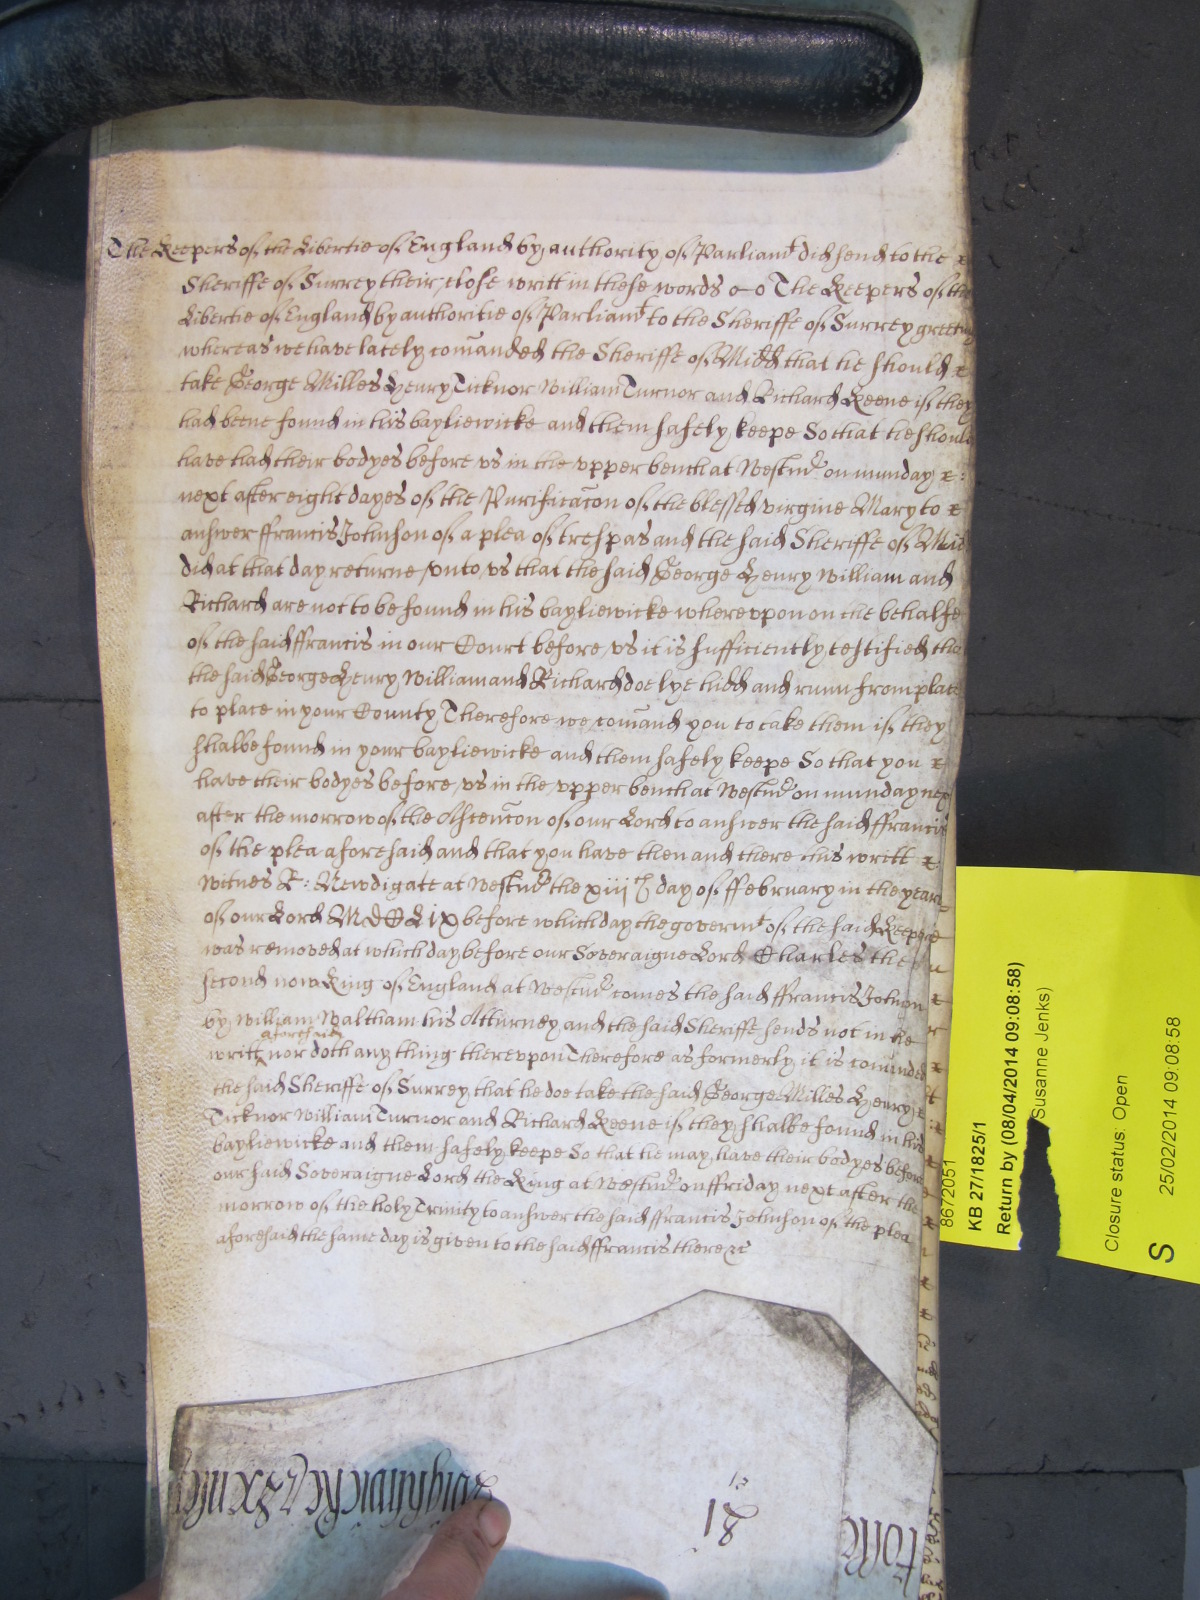 The Keepers of the Libertie of England by authority of Parliamt did send to the
Sheriffe of Surrey their close writt in these words o–o The Keepers of the
Libertie of England by authoritie of Parliamt to the Sheriffe of Surrey greeting
whereas we have lately comanded the Sheriffe of Midd that he should
take George Milles Henry Ticknor William Turnor and Richard Keene if they
had beene found in his bayliewicke and them safely keepe So that he should
have had their bodyes before us in the upper bench at Westmr on munday
next after eight dayes of the Purificacon of the blessed virgine Mary to
answer ffrancis Johnson of a plea of trespas and the said Sheriffe of Midd
did at that day returne unto us that the said George Henry William and
Richard are not to be found in his bayliewicke whereupon on the behalfe
of the said ffrancis in our Court before us it is sufficiently testified that
the said George Henry William and Richard doe lye hidd and runn from place
to place in your County Therefore we comand you to take them if they
shalbe found in your bayliewicke and them safely keepe So that you
have their bodyes before us in the upper bench at Westmr on munday next
after the morrow of the Ascencon of our Lord to answer the said ffrancis
of the plea aforesaid and that you have then and there this writt
Witnes R: Newdigate at Westmr the xiijth day of ffebruary in the yeare
of our Lord MDCLIX before which day the governmt of the said Keepers
was removed at which day before our Soveraigne Lord Charles the
second now King of England at Westmr comes the said ffrancis Johnson
by William Waltham his Atturney and the said Sheriffe sends not in the
writt aforesaid nor doth any thing thereupon Therefore as formerly it is comanded
the said Sheriffe of Surrey that he doe take the said George Milles Henry
Ticknor William Turnor and Richard Keene if they shalbe found in his
bayliewicke and them safely keepe So that he may have their bodyes before
our said Soveraigne Lord the King at Westmr on ffriday next after the
morrow of the holy Trinity to answer the said ffrancis Johnson of the plea
aforesaid the same day is given to the said ffrancis there &c
8672051
KB 27/1825/1
Return by (08/04/2014 09:08:58)
Susanne Jenks)
Closure status: Open
S
25/02/2014 09:08:58